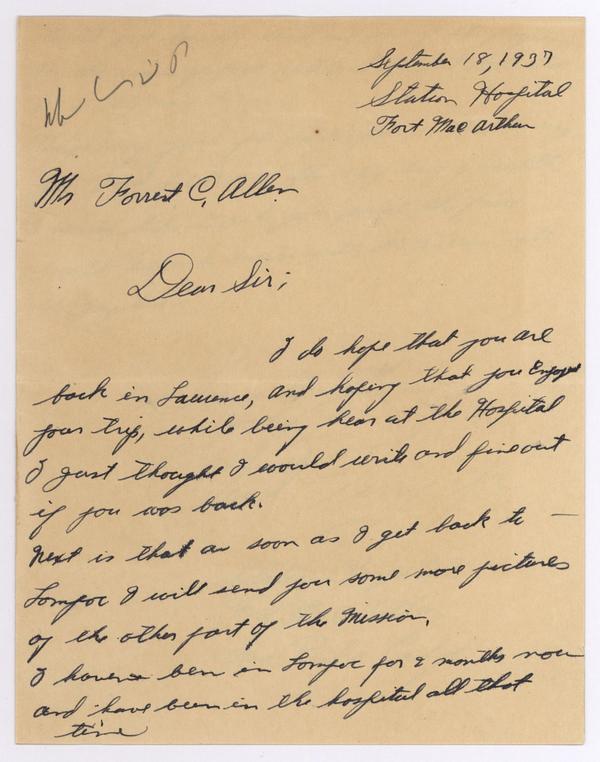 September 18, 1937
Station Hospital
Fort Mac Arthur
Mr Forrest C, Allen
Dear Sir;
I do hope that you are
back in Lawrence, and hoping that you Enjoyed
your trip, while being hear at the Hospital
I just thought I would write and fine out
if you was back.
Next is that as soon as I get back to
Lompoc I will send you some more pictures
of the other part of the Mission,
I haven ben in Lompoc for 2 months now
and have been in the hospital all that
time